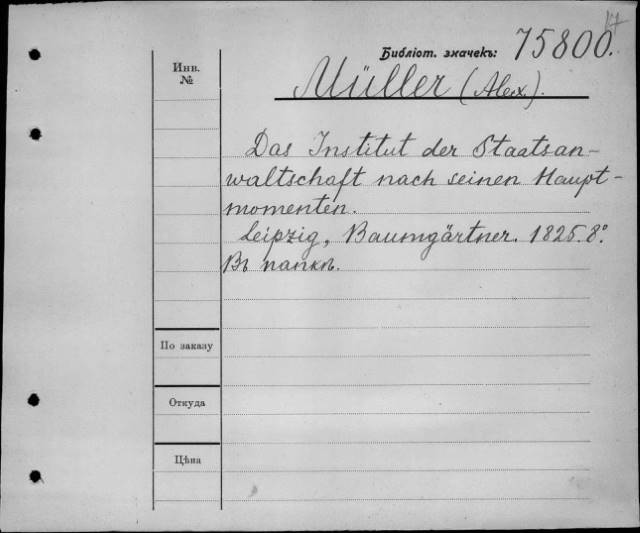 17
Библіот. значекъ: 75800.
Инв.
№
Müller (Alex.).
Das Institut der Staatsan-
waltschaft nach seinen Haupt-
momenten.
Leipzig, Baumgärtner. 1825. 8°
Въ папкѣ.
По заказу
Откуда
Цѣна